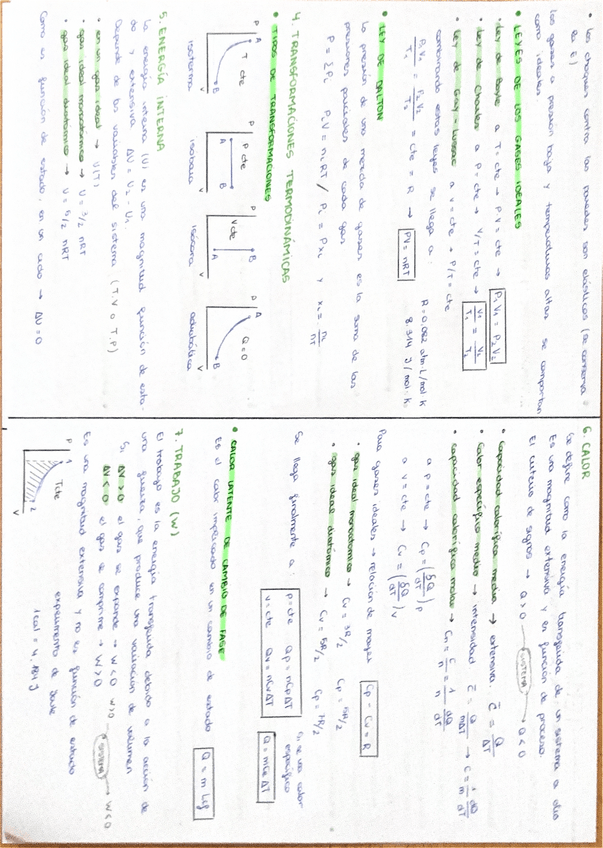 • los choques contra las paredes son elásticos (se conserva
la E)
los gases a presión baja y temperaturas altas se comportan
como ideales
• LEYES DE LOS GASES IDEALES
• ley de Boyle a T = cte → PV = cte → P₁V₁ = P₂V₂
• ley de Charles a P = cte → V/T = cte → V₁/T₁ = V₂/T₂
• ley de Gay-Lussac a V = cte → P/T = cte
combinando estas leyes se llega a:
P₁V₁/T₁ = P₂V₂/T₂ = cte = R → PV = nRT
R = 0.082 atm·L/mol K
8.314 J/mol·K
• LEY DE DALTON
la presión de una mezcla de gases es la suma de las
presiones parciales de cada gas
P = ΣPᵢ PᵢV = nᵢRT / Pᵢ = Pxᵢ y xᵢ = nᵢ/nT
4. TRANSFORMACIONES TERMODINÁMICAS
• TIPOS DE TRANSFORMACIONES
P A T cte B V
P P cte A B V
P V cte B A V
P A Q = 0 B V
isoterma isobara isocora adiabática
5. ENERGÍA INTERNA
la energía interna (U) es una magnitud función de esta-
do y extensiva ΔU = U₂ - U₁
Depende de las variables del sistema (T,V o T,P)
• en un gas ideal → U(T)
• gas ideal monoatómico → U = 3/2 nRT
• gas ideal diatómico → U = 5/2 nRT
Como es función de estado, en un ciclo → ΔU = 0
6. CALOR
Se define como la energía transferida de un sistema a otro
Es una magnitud extensiva y es función de proceso.
El criterio de signos → Q > 0 → SISTEMA → Q < 0
• Capacidad calorífica media → extensiva. C̄ = Q/ΔT
• Calor específico medio → intensidad c̄ = Q/mΔT → c = 1/m dQ/dT
• Capacidad calorífica molar → Cn = C/n = 1/n dQ/dT
a p = cte → Cp = (δQ/δT)p
a v = cte → Cv = (δQ/δT)v
Para gases ideales → relación de mayer Cp - Cv = R
• gas ideal monoatómico → Cv = 3R/2 Cp = 5R/2
• gas ideal diatómico → Cv = 5R/2 Cp = 7R/2
Se llega finalmente a:
p = cte Qp = nCpΔT
v = cte Qv = nCvΔT
Si se usa calor
específico
Q = mCeΔT
• CALOR LATENTE DE CAMBIO DE FASE
Es el calor implicado en un cambio de estado
7. TRABAJO (W)
El trabajo es la energía transferida debido a la acción de
una fuerza, que produce una variación de volumen
Si ΔV > 0 el gas se expande → W < 0
ΔV < 0 el gas se comprime → W > 0
W > 0 → SISTEMA → W < 0
Es una magnitud extensiva y no es función de estado
experimento de Joule
1 cal = 4.184 J
P 1 T cte 2 V